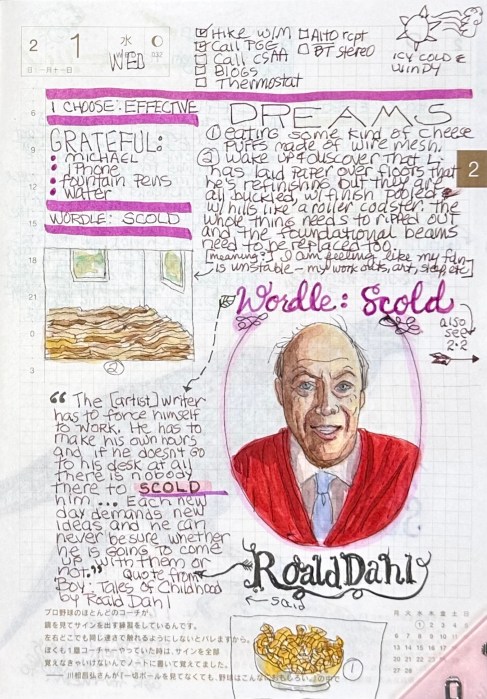 2
1
水
WED
二月一日
☑ Hike w/M
☑ Call PGE
☐ Call CSAA
☐ Blogs
☐ Thermostat
☐ Alto rcpt
☐ BT stereo
ICY COLD &
WINDY
I CHOOSE: EFFECTIVE
GRATEFUL:
• MICHAEL
• iPhone
• fountain pens
• water
WORDLE: SCOLD
6
9
12
15
18
21
0
3
2
DREAMS
① eating some kind of cheese
puffs made of wire mesh.
② Wake up & discover that
has laid paper over floors that
he's refinishing but they are
all buckled, w/ finish
w/ hills like a roller coaster. The
whole thing needs to ripped out
and the foundational beams
need to be replaced too.
[meaning?] I am feeling like my
is unstable – my work, art, etc]
②
Wordle: Scold
also
see
2·2
“ The [artist] writer
has to force himself
to work. He has to
make his own hours
and if he doesn't go
to his desk at all
there is nobody
there to SCOLD
him ... Each new
day demands new
ideas and he can
never be sure whether
he is going to come
up with them or
not.”
Quote from
Boy: Tales of Childhood
by Roald Dahl
Roald Dahl
said
①
プロ野球のほとんどのコーチが、
鏡を見てサインを出す練習をしているんです。
左右どこでも同じ速さで触れるようにしないとバレますから。
ぼくも1塁コーチャーやっていた時は、サインを全部
覚えなきゃいけないんでノートに書いて覚えてました。
月 火 水 木 金 土 日
1 2 3 4 5
6 7 8 9 10 11 12
13 14 15 16
20 21 22
27 28